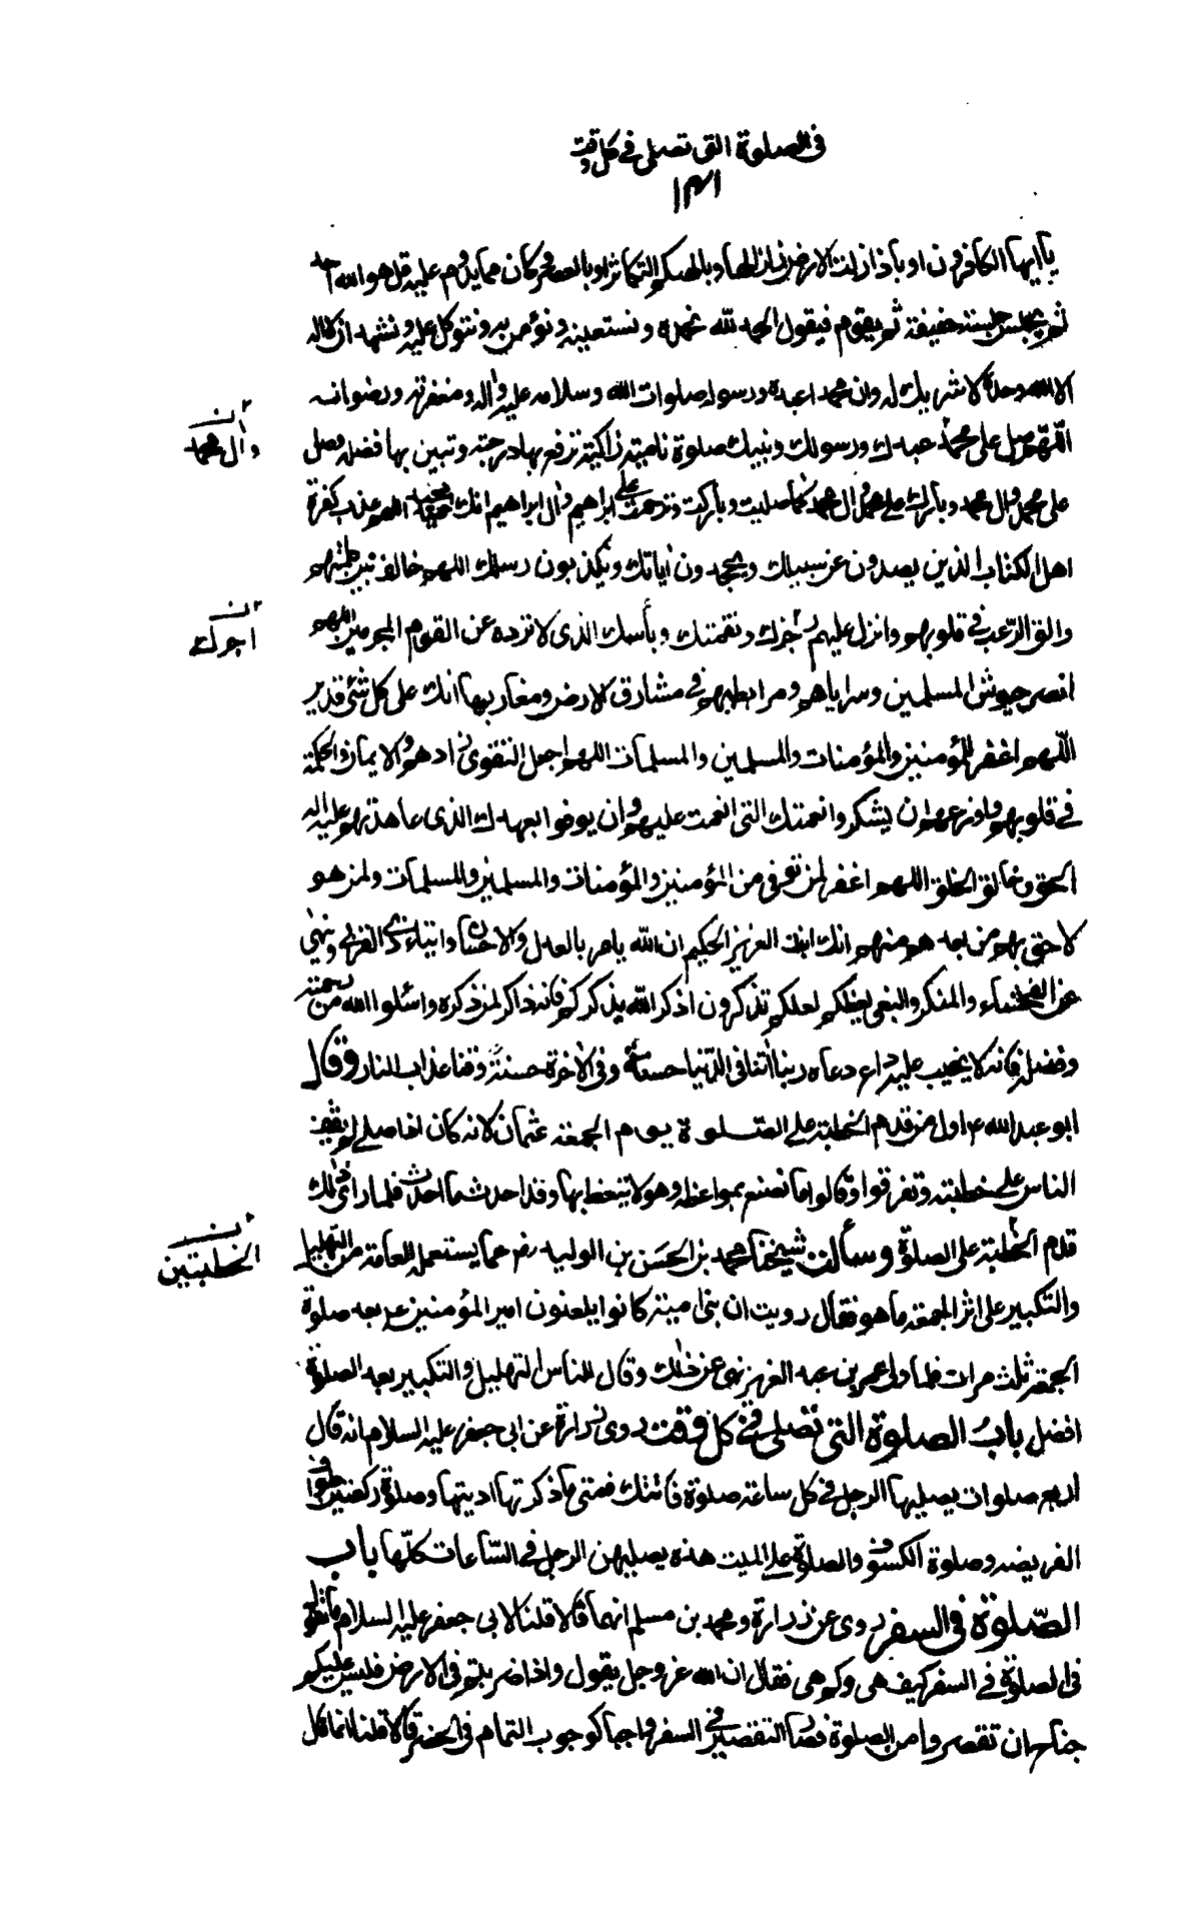 في الصلوة التي تصلى في كل وقت
١٣١
يا ايها الكافرون او باذا زلزلت الارض زلزالها او بالهيكم التكاثر او بالعصر وكان مما يدوم عليه قل هو الله احد
ثم يجلس جلسة خفيفة ثم يقوم فيقول الحمد لله نحمده ونستعينه ونؤمن به ونتوكل عليه ونشهد ان لا اله
الا الله وحده لا شريك له وان محمدا عبده ورسوله صلوات الله وسلامه عليه واله ومغفرته ورضوانه
اللهم صل على محمد عبدك ورسولك ونبيك صلوة نامية زاكية ترفع بها درجته وتبين بها فضله وصل
وال محمد
على محمد وال محمد وبارك على محمد وال محمد كما صليت وباركت وترحمت على ابراهيم وال ابراهيم انك حميد مجيد اللهم عذب كفرة
اهل الكتاب الذين يصدون عن سبيلك ويجحدون اياتك ويكذبون رسلك اللهم خالف بين كلمتهم
والق الرعب في قلوبهم وانزل عليهم رجزك ونقمتك وبأسك الذى لا ترده عن القوم المجرمين اللهم
انصر جيوش المسلمين وسراياهم ومرابطيهم في مشارق الارض ومغاربها انك على كل شئ قدير
اللهم اغفر للمؤمنين والمؤمنات والمسلمين والمسلمات اللهم اجعل التقوى زادهم والايمان والحكمة
في قلوبهم واوزعهم ان يشكروا نعمتك التى انعمت عليهم وان يوفوا بعهدك الذى عاهدتهم عليه اله
الحق وخالق الخلق اللهم اغفر لمن توفى من المؤمنين والمؤمنات والمسلمين والمسلمات ولمن هو
لاحق بهم من بعدهم منهم انك انت العزيز الحكيم ان الله يامر بالعدل والاحسان وايتاء ذى القربى وينهى
عن الفحشاء والمنكر والبغى يعظكم لعلكم تذكرون اذكروا الله يذكركم فانه ذاكر لمن ذكره واسئلوا الله من رحمته
وفضله فانه لا يخيب عليه داع دعاه ربنا اتنا في الدنيا حسنة وفي الاخرة حسنة وقنا عذاب النار وقال
ابو عبد الله ع اول من قدم الخطبة على الصلوة يوم الجمعة عثمان لانه كان اذا صلى لم يقف
الناس على خطبته وتفرقوا وقالوا ما نصنع بمواعظه وهو لا يتعظ بها وقد احدث ما احدث فلما راى ذلك
قدم الخطبة على الصلاة وسألت شيخنا محمد بن الحسن بن الوليد رض عما يستعمله العامة من التهليل
الخطبتين
والتكبير على اثر الجمعة ما هو فقال رويت ان بنى امية كانوا يلعنون امير المؤمنين ع بعد صلوة
الجمعة ثلث مرات فلما ولى عمر بن عبد العزيز نهى عن ذلك وقال للناس التهليل والتكبير بعد الصلوة
افضل باب الصلوة التى تصلى في كل وقت روى زرارة عن ابى جعفر عليه السلام انه قال
اربع صلوات يصليها الرجل في كل ساعة صلوة فاتتك فمتى ما ذكرتها اديتها وصلوة ركعتى طواف
الفريضه وصلوة الكسوف والصلوة على الميت هذه يصليهن الرجل في الساعات كلها باب
الصلوة في السفر روى عن زرارة ومحمد بن مسلم انهما قالا قلنا لابى جعفر عليه السلام ما تقول
في الصلوة في السفر كيف هى وكم هى فقال ان الله عز وجل يقول واذا ضربتم في الارض فليس عليكم
جناح ان تقصروا من الصلوة فصار التقصير في السفر واجبا كوجوب التمام في الحضر قالا قلنا انما قال